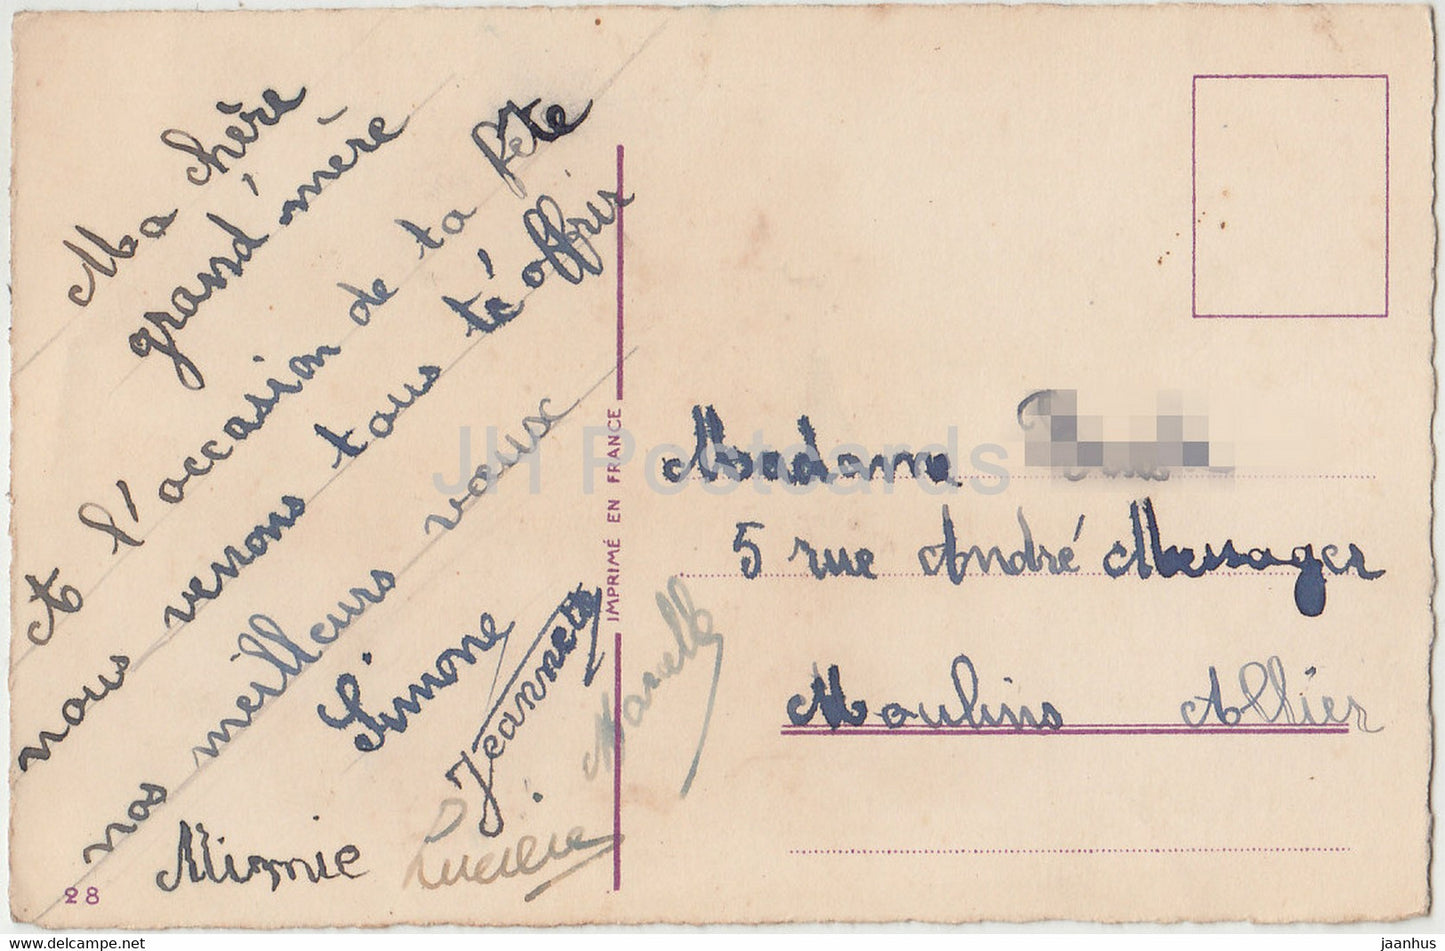 Ma chère
grand'mère
A l'occasion de ta fête
nous venons tous t'offrir
nos meilleurs voeux
Simone
Jeannette
Marcelle
Mimie
Lucienne
28
IMPRIMÉ EN FRANCE
Madame
5 rue André Messager
Moulins Allier
JH Postcards
jaanhus
delcampe.net